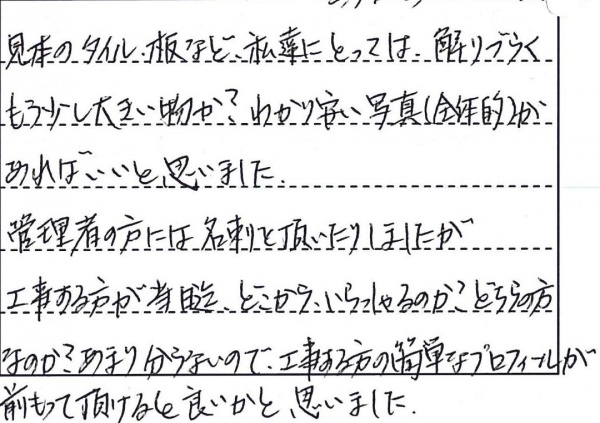 見本のタイル、板など、私達にとっては、解りづらく
もう少し大きい物か？わかり安い写真(全体的)が
あればいいと思いました.
管理者の方には名刺を頂いたりしましたが
工事する方が当日迄、どこからいらっしゃるのか？どちらの方
なのか？あまり分らないので、工事する方の簡単なプロフィールが
前もって頂けると良いかと思いました.